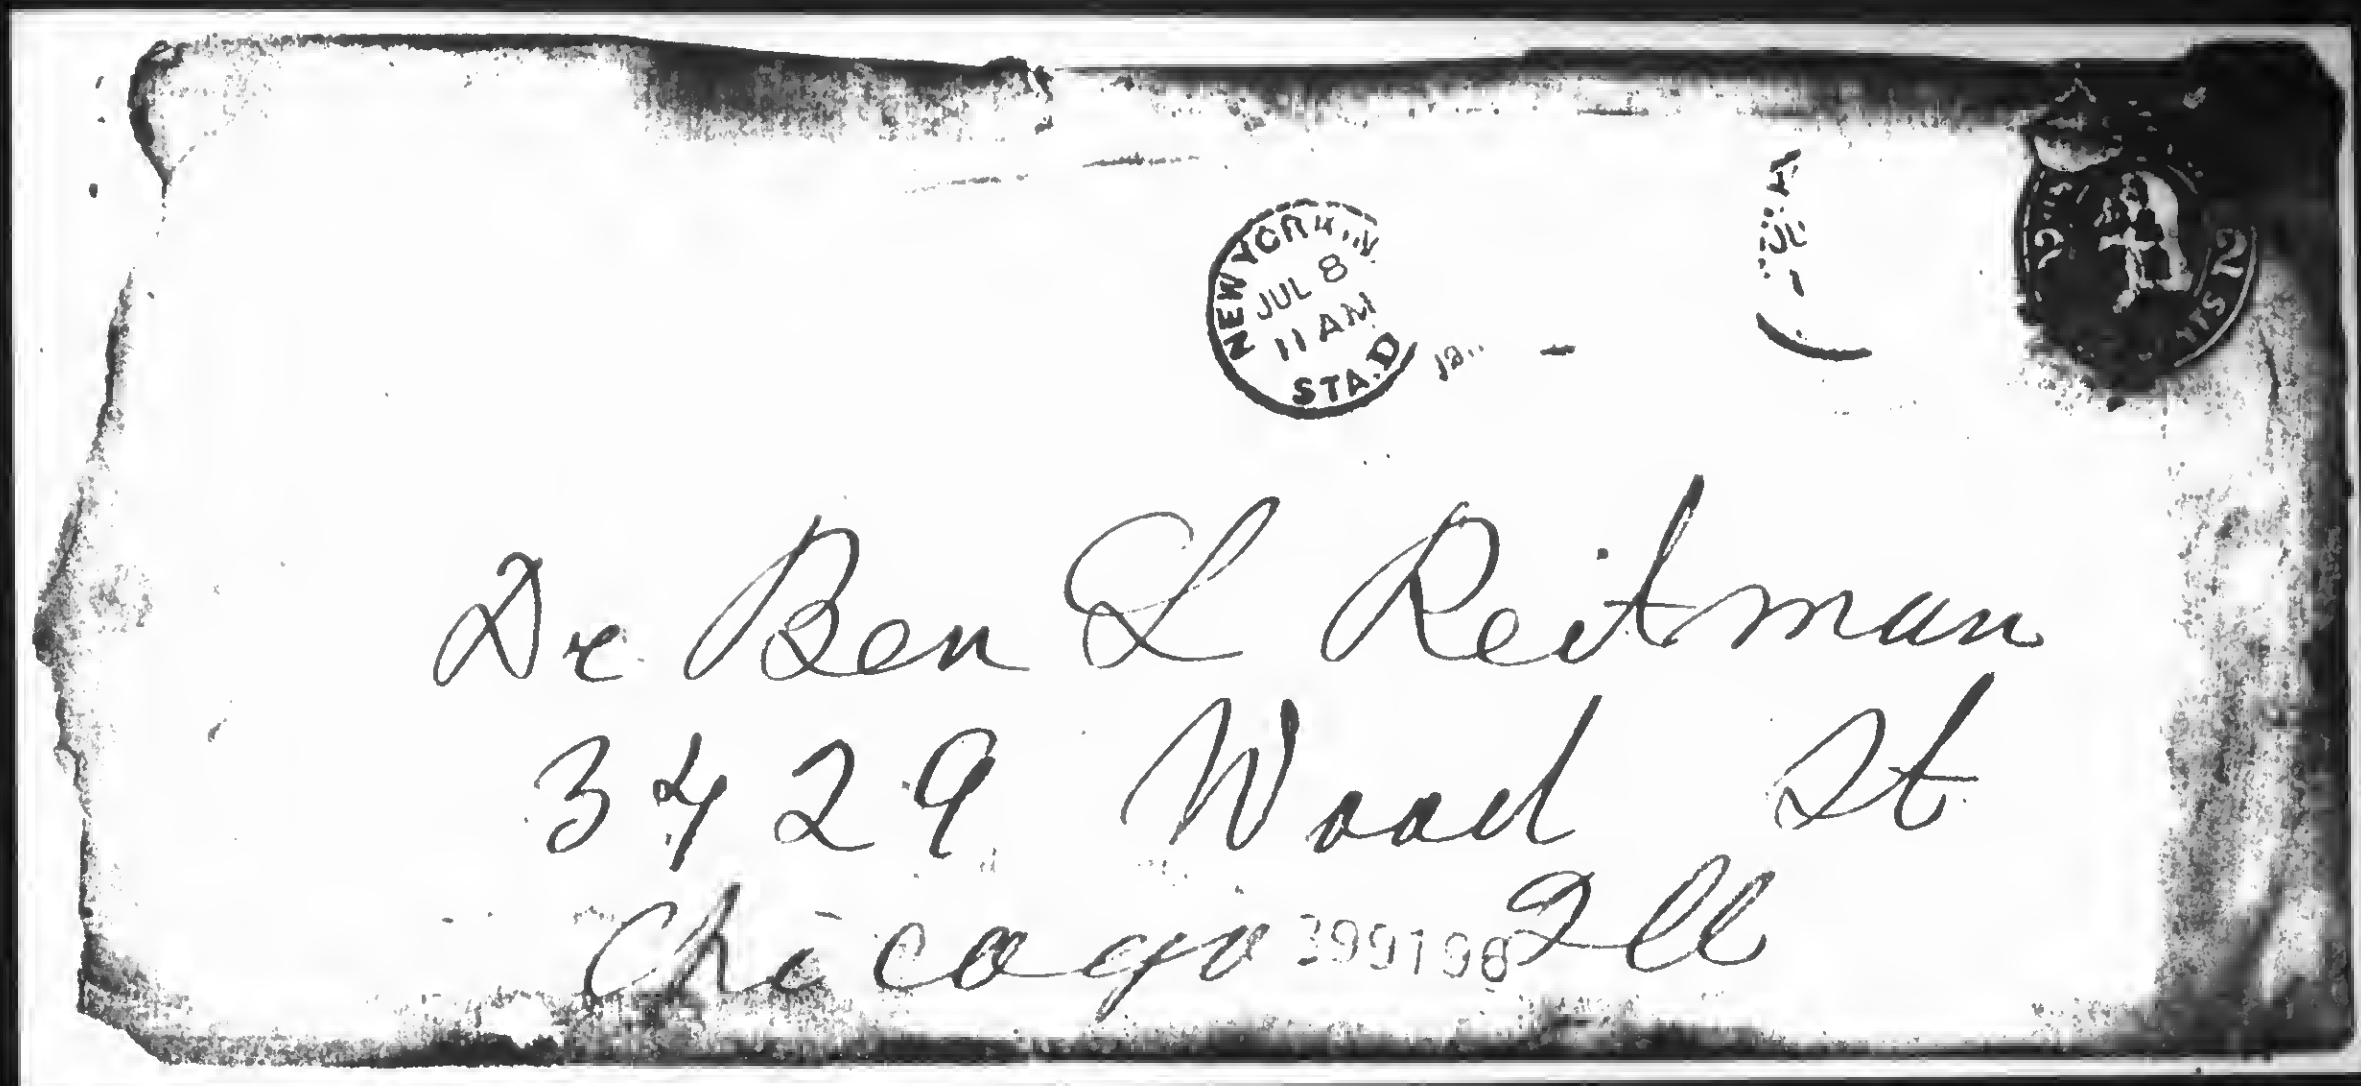 NEW YORK, N
JUL 8
11 AM
STA. D
JUL
2 2
Dr Ben L Reitman
3429 Wood St
Chicago Ill
399196